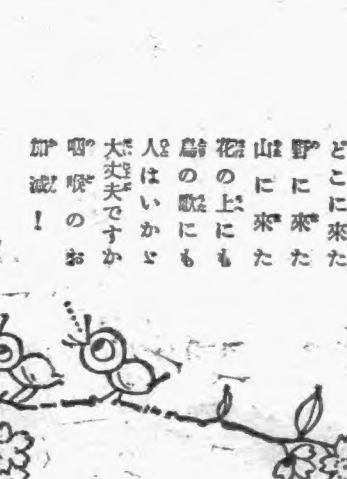 どこに來た
野に來た
山に來た
花の上にも
鳥の歌にも
人はいかゞ
大丈夫ですか
咽喉のお
加減！